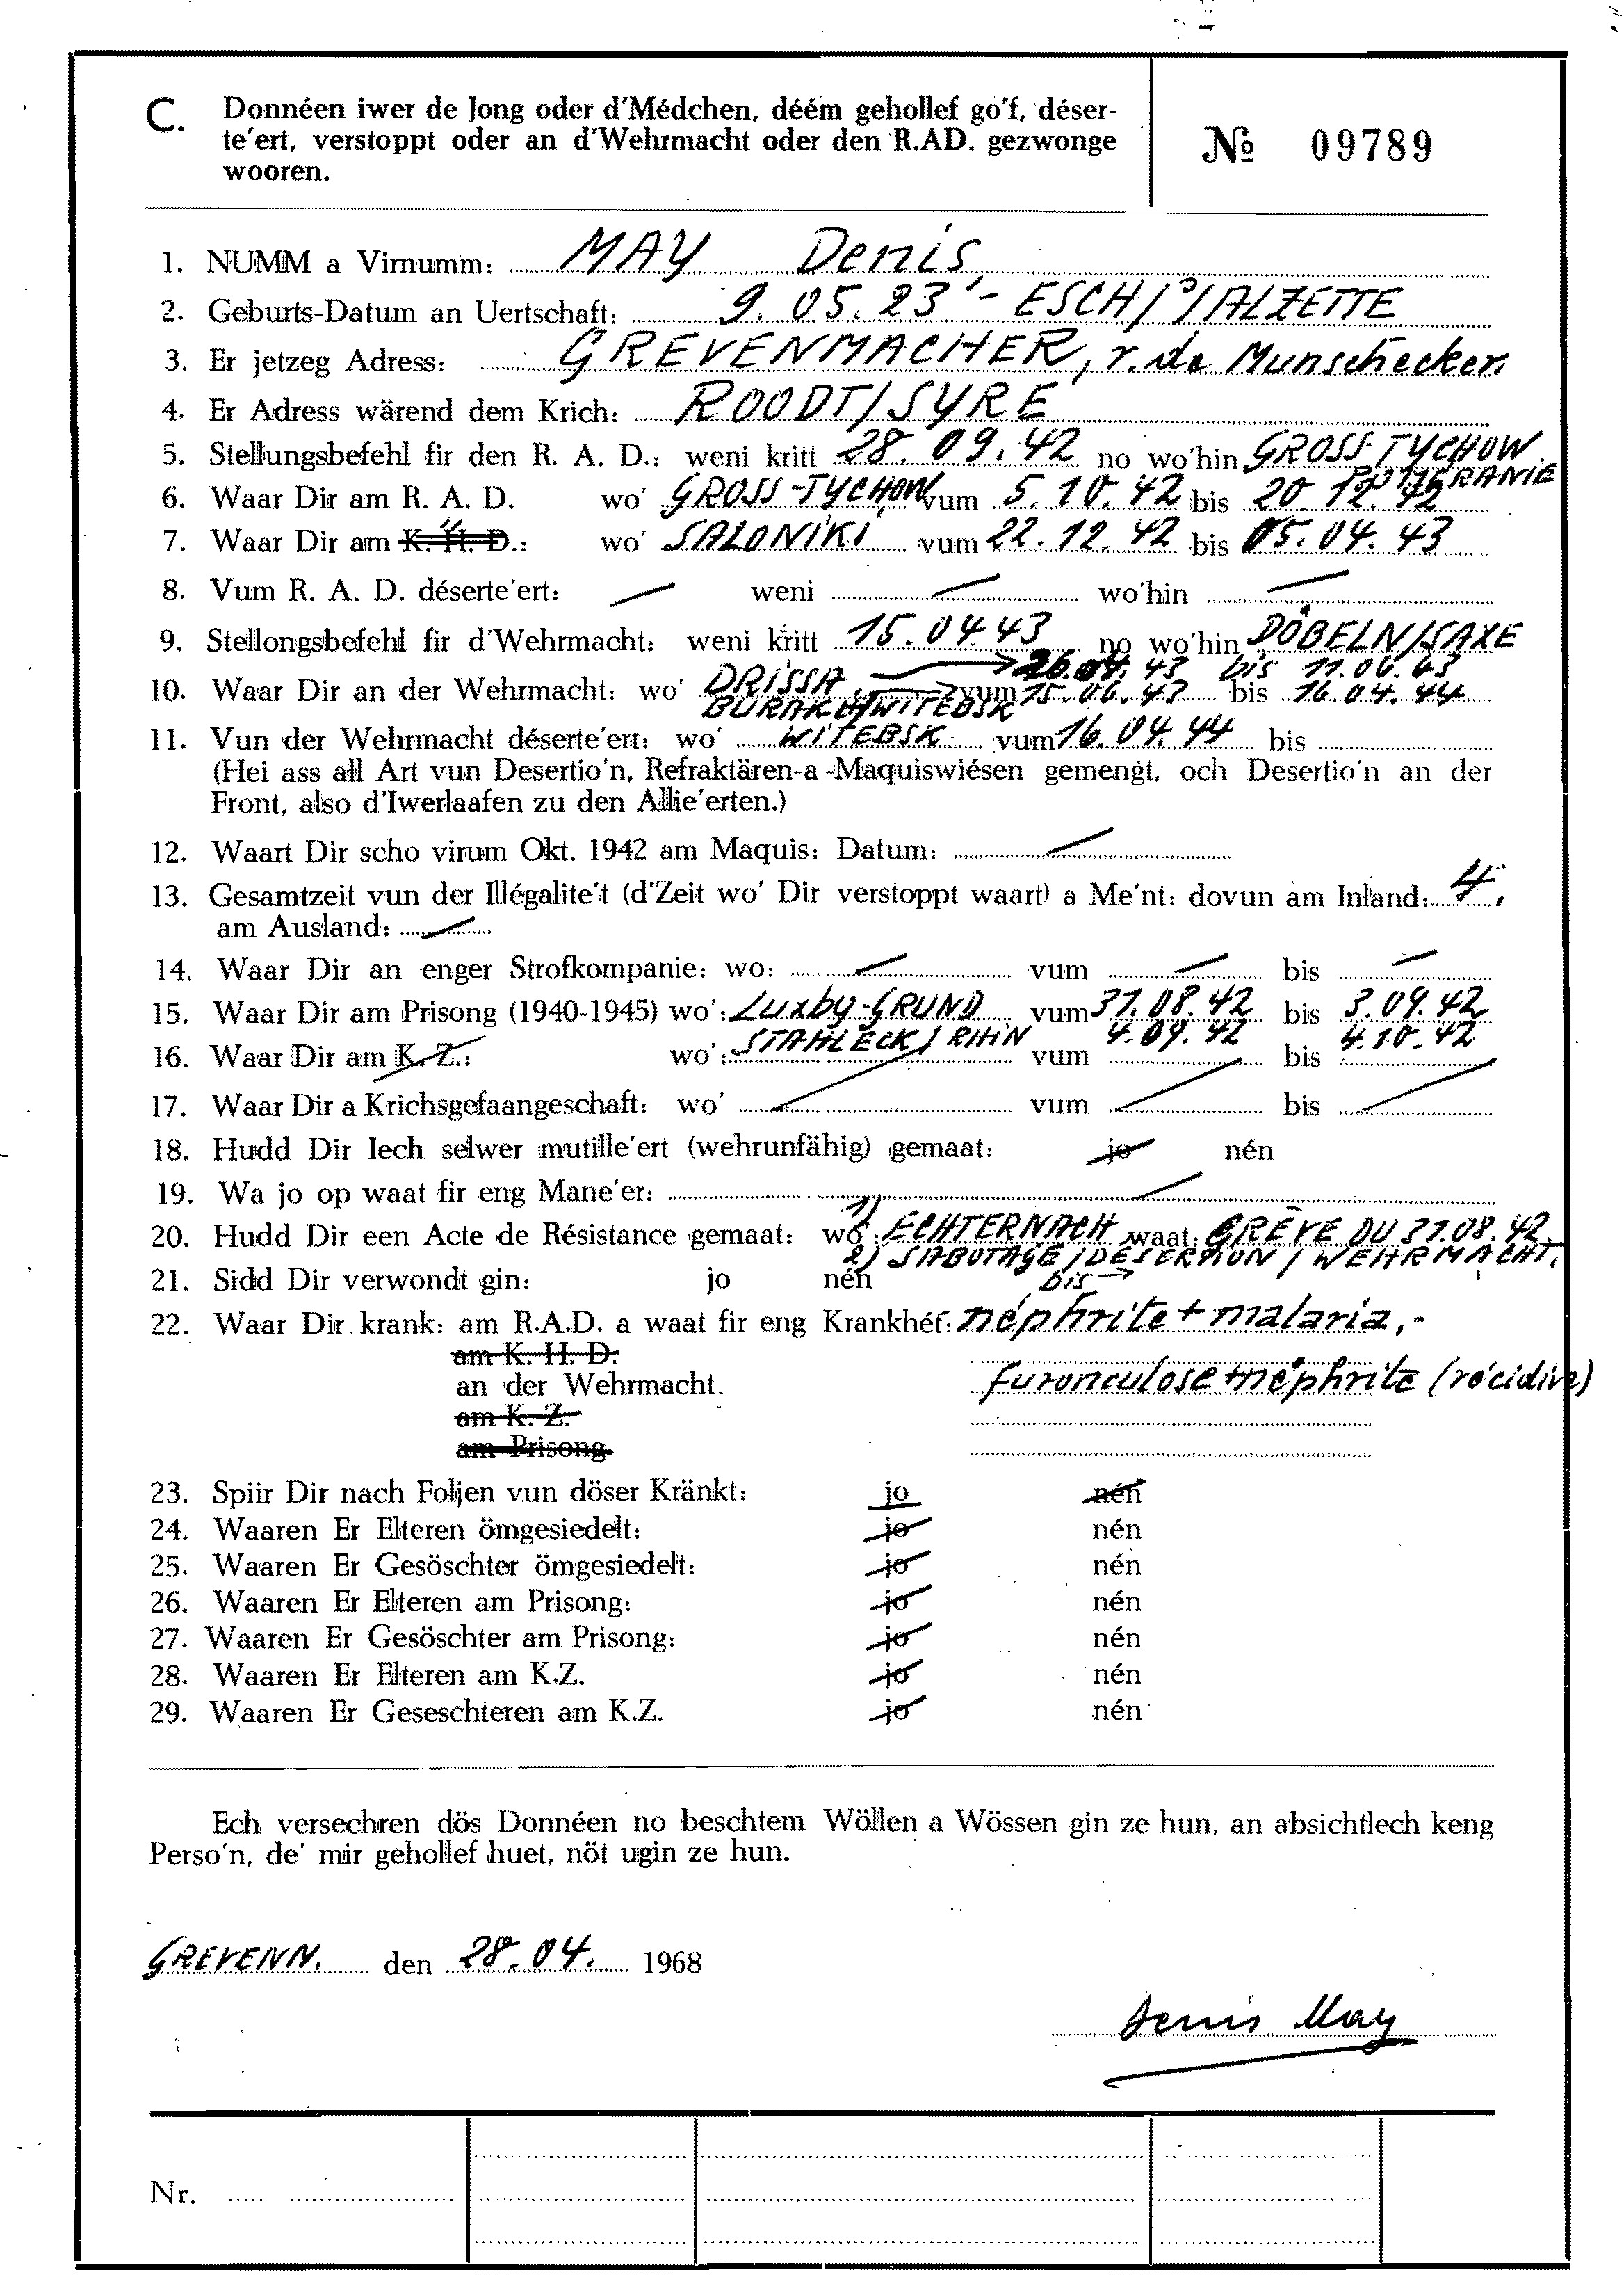 C. Donnéen iwer de Jong oder d'Médchen, déém gehollef go'f, déser-
te'ert, verstoppt oder an d'Wehrmacht oder den R.AD. gezwonge
wooren.
№ 09789
1. NUMM a Virnumm: MAY Denis
2. Geburts-Datum an Uertschaft: 9.05.23 - ESCH/s/ALZETTE
3. Er jetzeg Adress: GREVENMACHER, r. de Munschecker
4. Er Adress wärend dem Krich: ROODT/SYRE
5. Stellungsbefehl fir den R. A. D.: weni kritt 28.09.42 no wo'hin GROSS TYCHOW
POMERANIE
6. Waar Dir am R. A. D. wo' GROSS-TYCHOW vum 5.10.42 bis 20.12.42
7. Waar Dir am K. H. D.: wo' SALONIKI vum 22.12.42 bis 05.04.43
8. Vum R. A. D. déserte'ert: — weni — wo'hin —
9. Stellongsbefehl fir d'Wehrmacht: weni kritt 15.04.43 no wo'hin DÖBELN/SAXE
26.04.43 bis 11.06.43
10. Waar Dir an der Wehrmacht: wo' DRISSA vum 15.06.43 bis 16.04.44
WITEBSK
11. Vun der Wehrmacht déserte'ert: wo' WITEBSK vum 16.04.44 bis
(Hei ass all Art vun Desertio'n, Refraktären-a-Maquiswiésen gemengt, och Desertio'n an der
Front, also d'Iwerlaafen zu den Allie'erten.)
12. Waart Dir scho virum Okt. 1942 am Maquis: Datum: —
13. Gesamtzeit vun der Illégalite't (d'Zeit wo' Dir verstoppt waart) a Me'nt: dovun am Inland: 4,
am Ausland: —
14. Waar Dir an enger Strofkompanie: wo: — vum — bis —
15. Waar Dir am Prisong (1940-1945) wo': Luxbg-GRUND vum 31.08.42 bis 3.09.42
16. Waar Dir am K. Z.: wo': STAHLECK/RHIN vum 4.09.42 bis 4.10.42
17. Waar Dir a Krichsgefaangeschaft: wo' — vum — bis —
18. Hudd Dir Iech selwer mutille'ert (wehrunfähig) gemaat: jo nén
19. Wa jo op waat fir eng Mane'er: —
20. Hudd Dir een Acte de Résistance gemaat: wo': 1) ECHTERNACH waat: GRÈVE DU 31.08.42
2) SABOTAGE/DÉSERTION/WEHRMACHT.
21. Sidd Dir verwondt gin: jo nén bis →
22. Waar Dir krank: am R.A.D. a waat fir eng Krankhét: néphrite + malaria,-
am K. H. D.
an der Wehrmacht. furonculose + néphrite (récidive)
am K. Z.
am Prisong
23. Spiir Dir nach Foljen vun döser Kränkt: jo nén
24. Waaren Er Elteren ömgesiedelt: jo nén
25. Waaren Er Gesöschter ömgesiedelt: jo nén
26. Waaren Er Elteren am Prisong: jo nén
27. Waaren Er Gesöschter am Prisong: jo nén
28. Waaren Er Elteren am K.Z. jo nén
29. Waaren Er Geseschteren am K.Z. jo nén
Ech versechren dös Donnéen no beschtem Wöllen a Wössen gin ze hun, an absichtlech keng
Perso'n, de' mir gehollef huet, nöt ugin ze hun.
GREVENM. den 28.04. 1968
Denis May
Nr.